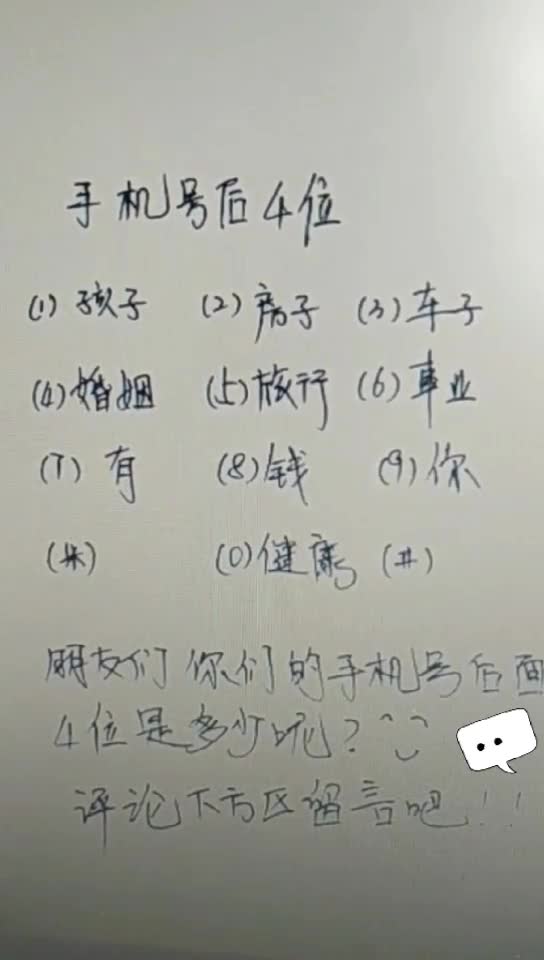 手机号后4位
(1)孩子 (2)房子 (3)车子
(4)婚姻 (5)旅行 (6)事业
(7)有 (8)钱 (9)你
(*) (0)健康 (#)
朋友们你们的手机号后面
4位是多少呢?
评论下方区留言吧!!